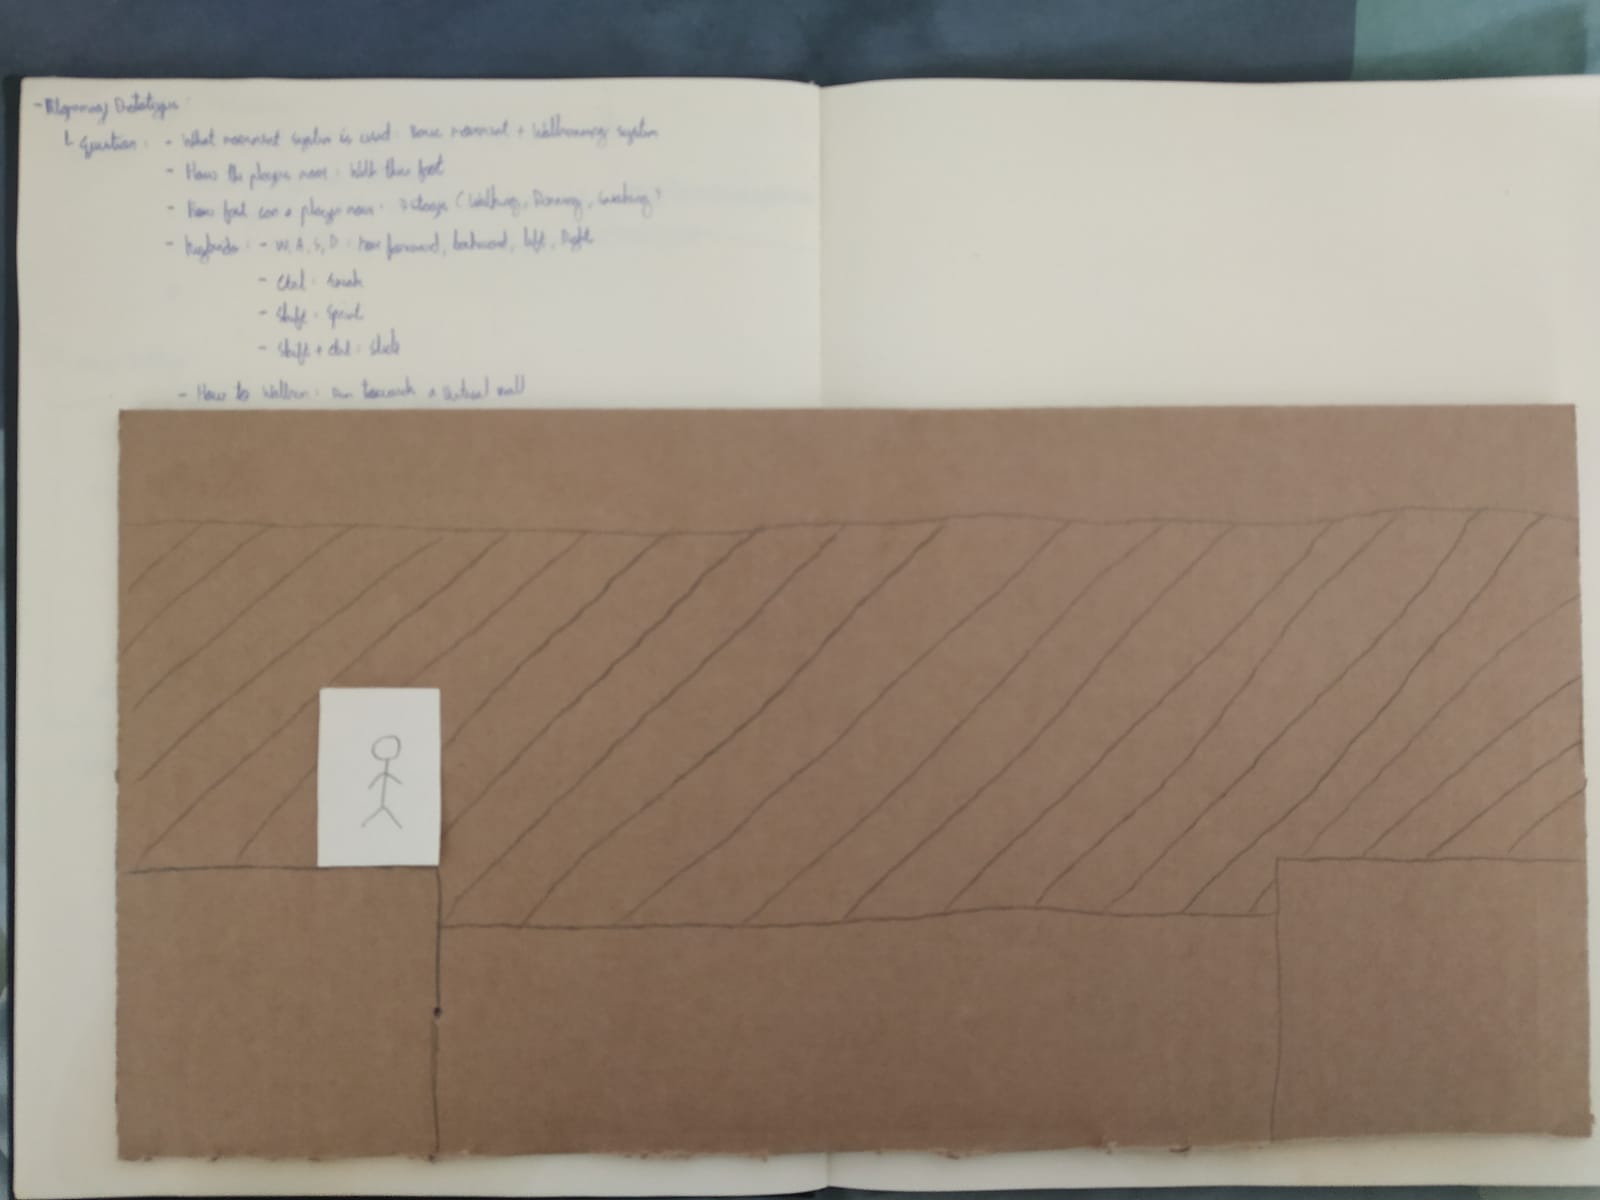 - Playmap Prototype:
Question: - What movement system is used: Basic movement + Wallrunning system
- How the player move: With their feet
- How fast can a player move: 3 stages (Walking, Running, Sneaking)
- Keybinds: - W, A, S, D: Move forward, backward, left, right
- Ctrl: Sneak
- Shift: Sprint
- Shift + Ctrl: Slide
- How to Wallrun: Run towards a vertical wall